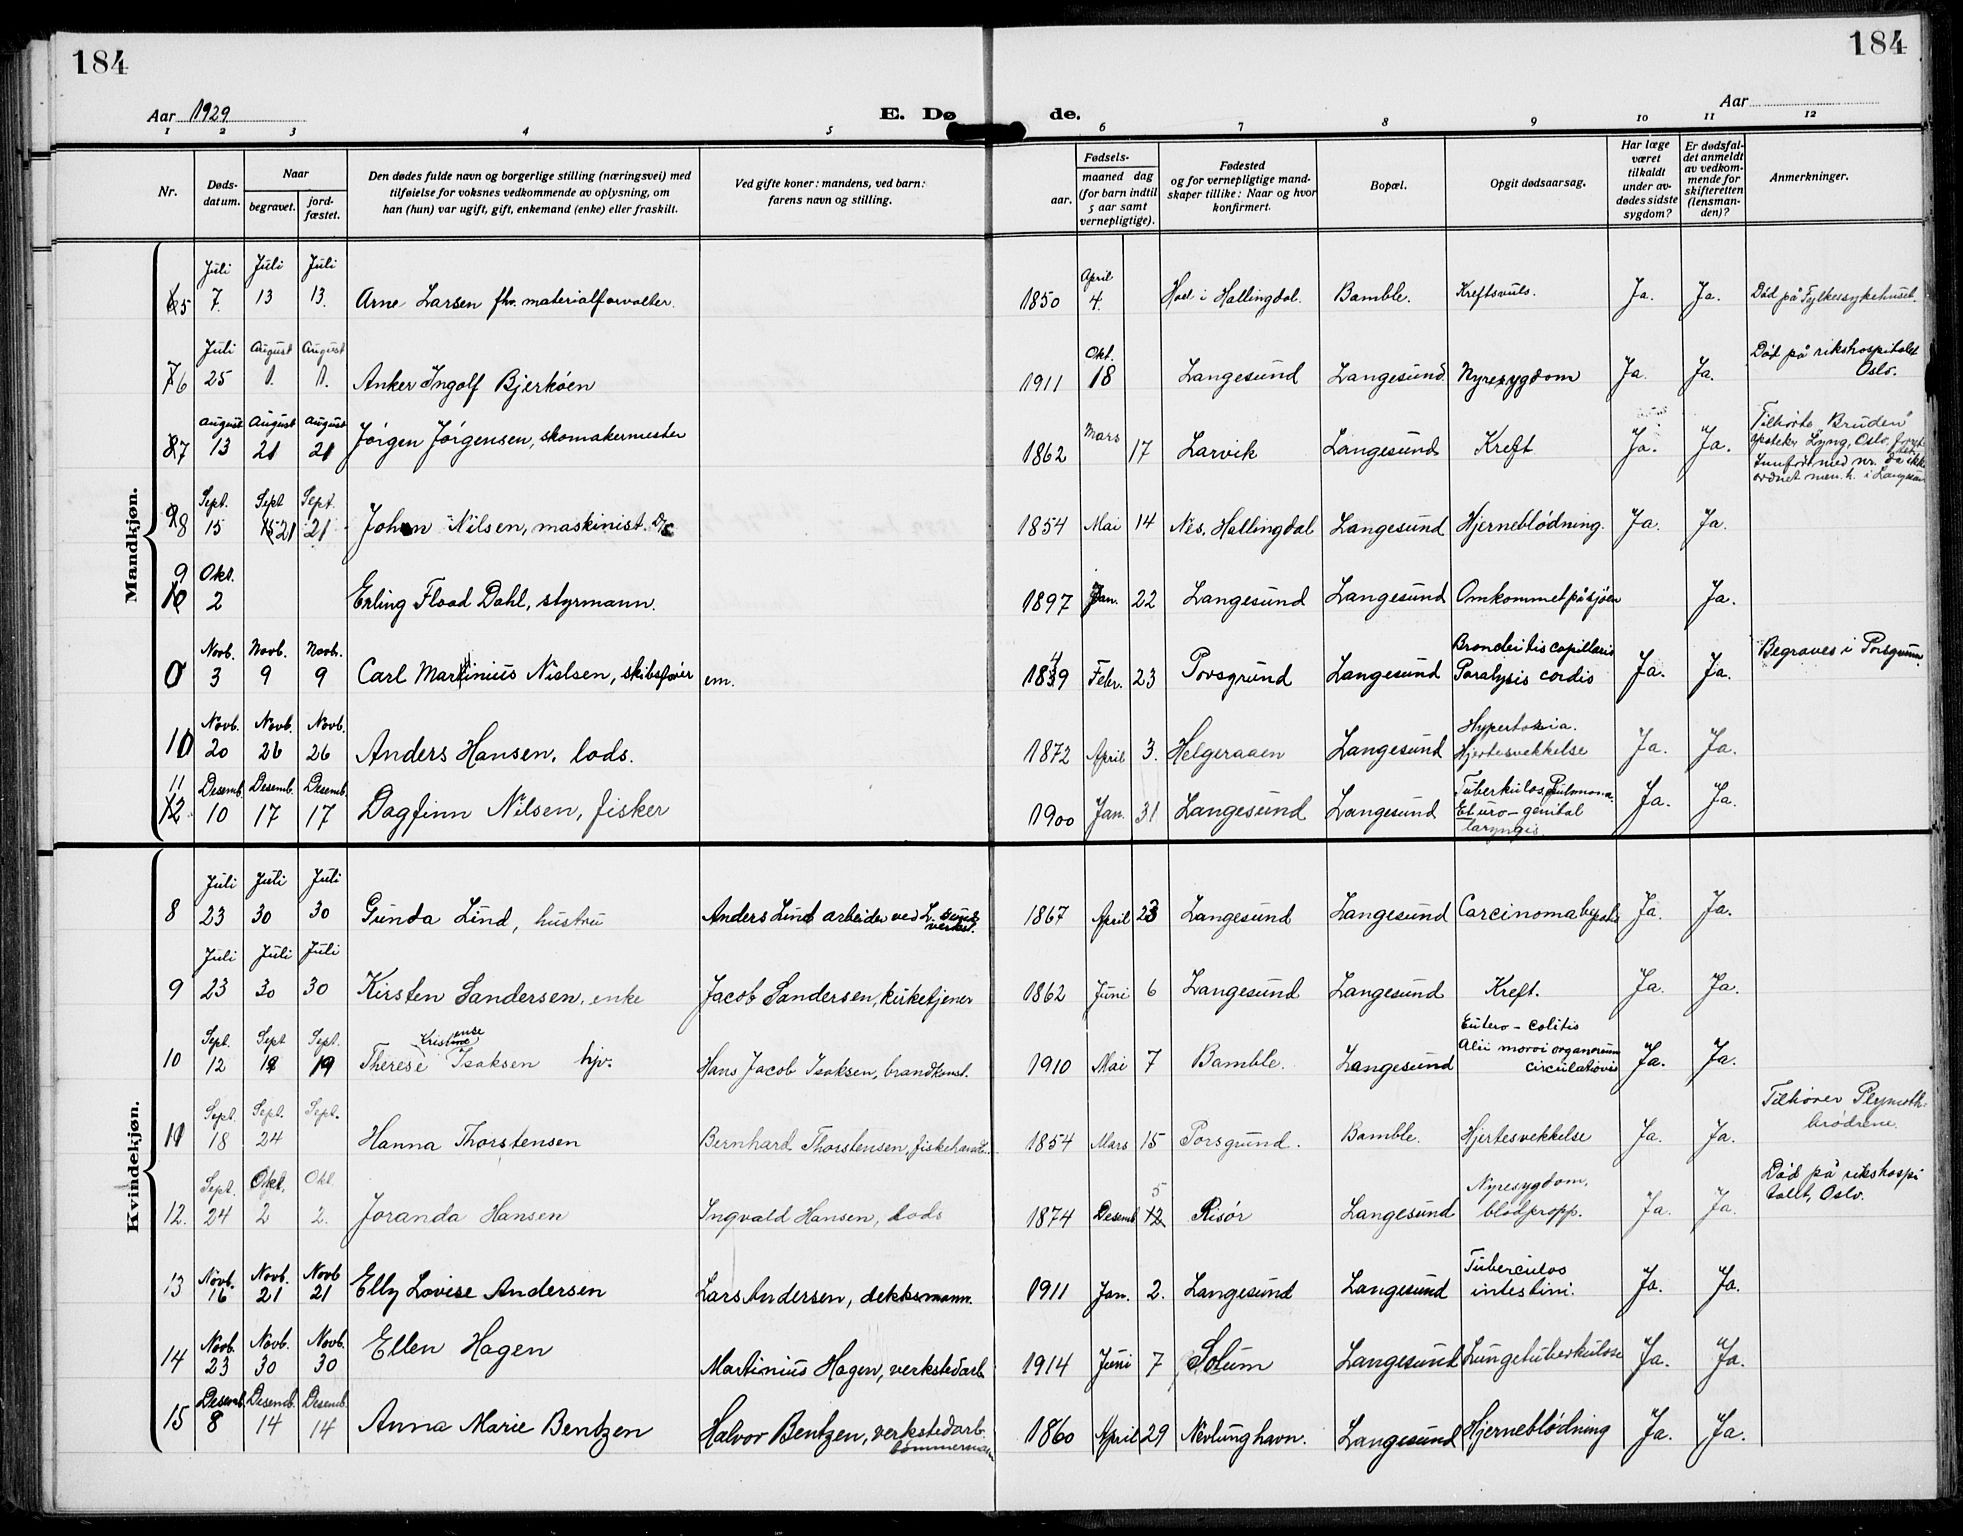 184
184
Aar 1929
E. Dø de.
Aar
1 2 3 4 5 6 7 8 9 10 11 12
Nr.
Døds-datum.
Naar
begravet.
jord-fæstet.
Den dødes fulde navn og borgerlige stilling (næringsvei) med
tilføielse for voksnes vedkommende av oplysning, om
han (hun) var ugift, gift, enkemand (enke) eller fraskilt.
Ved gifte koner: mandens, ved barn:
farens navn og stilling.
Fødsels-
aar.
maaned dag
(for barn indtil
5 aar samt
vernepligtige).
Fødested
og for vernepligtige mand-
skaper tillike: Naar og hvor
konfirmert.
Bopæl.
Opgit dødsaarsag.
Har læge
været
tilkaldt
under av-
dødes sidste
sygdom?
Er dødsfal-
det anmeldt
av vedkom-
mende for
skifteretten
(lensman-
den)?
Anmerkninger.
Mandkjøn.
5 Juli 7. Juli 13 Juli 13. Arne Larsen fhv. materialforvalter. 1850 April 4. Hol i Hallingdal. Bamble. Kreftsvuls. Ja. Ja. Død på Fylkessykehuset.
6 Juli 25 August 1. August 1. Anker Ingolf Bjerkøen 1911 Okt. 18 Langesund Langesund Nyresygdom Ja. Ja. Død på rikshospitalet
Oslo.
7 August 13 August 21 August 21 Jørgen Jørgensen, skomakermester 1862 Mars 17 Larvik Langesund Kreft Ja. Ja. Tilhørte "Bruden"
apotek. Lyng, Oslo,
8 Sept. 15 Sept 21 Sept. 21 Johan Nilsen, maskinist. 1854 Mai 14 Nes, Hallingdal Langesund Hjerneblødning. Ja. Ja.
9 Okt. 2 Erling Flood Dahl, styrmann. 1897 Jan. 22 Langesund Langesund Omkommet på sjøen Ja.
0 Novb. 3 Novb. 9 Novb. 9 Carl Martinius Nielsen, skibsfører em. 1849 Febr. 23 Porsgrund Langesund Bronchitis capillaris
Paralysis cordis Ja. Ja. Begraves i Porsgrunn
10 Novb. 20 Novb. 26 Novb. 26 Anders Hansen, lods. 1872 April 3. Helgeraaen Langesund Hypertonia.
Hjertesvekkelse Ja. Ja.
11 Desemb. 10 Desemb. 17 Desemb. 17 Dagfinn Nilsen, fisker 1900 Jan. 31 Langesund Langesund Tuberkulos. Pulmona.
Et uro-genital
laryngis Ja. Ja.
Kvindekjøn.
8 Juli 23 Juli 30 Juli 30 Gunda Lind, hustru Anders Lind arbeider ved L. sunds
verkst. 1867 April 23 Langesund Langesund Carcinoma hepatis Ja. Ja.
9 Juli 23 Juli 30 Juli 30 Kirsten Sandersen, enke Jacob Sandersen, kirketjener 1862 Juni 6 Langesund Langesund Kreft. Ja. Ja.
10 Sept. 12 Sept 19 Sept. 19 Therese Kristense Isaksen hjv. Hans Jacob Isaksen, brandkonst. 1910 Mai 7 Bamble. Langesund Entero-colitis
Alii morvi organorum
circulationis Ja. Ja.
11 Sept. 18 Sept. 24 Sept. Hanna Thorstensen Bernhard Thorstensen, fiskehandl. 1854 Mars 15 Porsgrund. Bamble. Hjertesvekkelse Ja. Ja. Tilhører Plymoth-
brødrene.
12. Sept. 24 Okt. 2 Okt. 2. Joranda Hansen Ingvald Hansen, lods 1874 Desemb 5 Risør Langesund Nyresygdom,
blodpropp. Ja. Ja. Død på rikshospi
talet, Oslo.
13 Novb. 16 Novb. 21 Novb 21 Elly Lovise Andersen Lars Andersen, dekksmann. 1911 Jan. 2. Langesund Langesund Tuberculos
intestini. Ja. Ja.
14 Novb. 23 Novb. 30 Novb. 30 Ellen Hagen Martinius Hagen, verkstedarb. 1914 Juni 7 Solum Langesund Lungetuberkulose Ja. Ja.
15 Desemb. 8 Desemb. 14 Desemb. 14 Anna Marie Bentzen Halvor Bentzen, verkstedarb.
tømmerman 1860 April 29 Nevlunghavn. Langesund Hjerneblødning Ja. Ja.